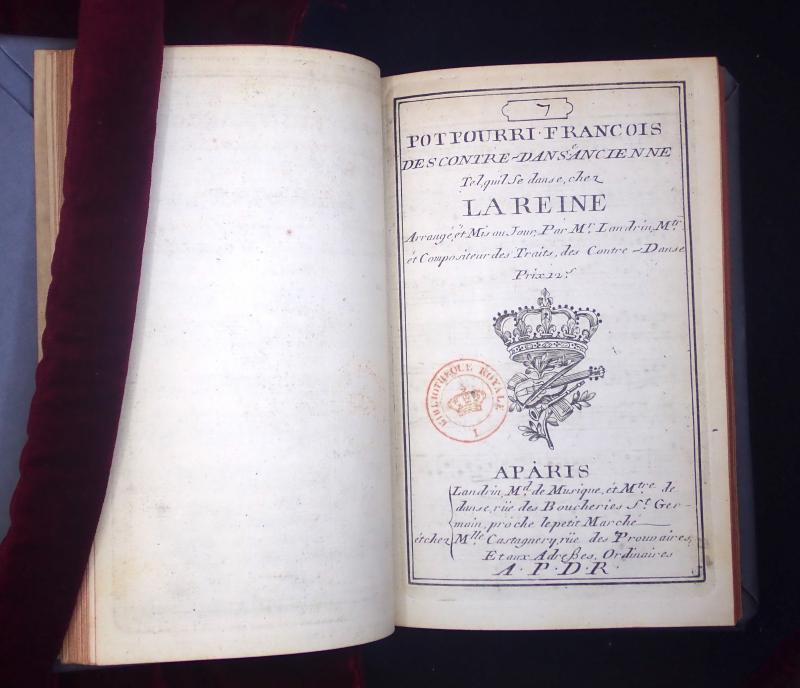 7
POTPOURRI · FRANCOIS
DES CONTRE-DANSE ANCIENNE
Tel quil Se danse, chez
LA REINE
Arrangé, ét Mis au Jour, Par Mr. Landrin, Mtr.
ét Compositeur des Traits, des Contre-Danse
Prix 12s
BIBLIOTHEQUE ROYALE
I
APÀRIS
Landrin, Md. de Musique, ét Mtre. de
danse, rüe des Boucheries St. Ger-
main, proche le petit Marché
ét chez Mlle Castagnery, rüe des Prouvaires,
Et aux Adreßes, Ordinaires
A · P · D · R ·